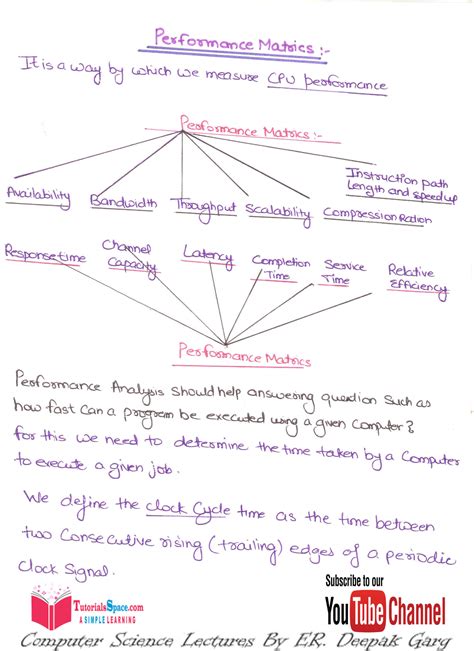 Performance Matrics :-
It is a way by which we measure CPU performance
Performance Matrics:-
Availability Bandwidth Throughput Scalability Compression Ration Instruction path
Length and speed up
Response time Channel
Capacity Latency Completion
Time Service
Time Relative
Efficiency
Performance Matrics
Performance Analysis should help answering question such as
how fast can a program be executed using a given Computer?
for this we need to determine the time taken by a Computer
to execute a given job.
We define the clock Cycle time as the time between
two Consecutive rising (trailing) edges of a periodic
Clock Signal.
TutorialsSpace.com
A SIMPLE LEARNING
Subscribe to our
YouTube Channel
Computer Science Lectures By ER. Deepak Garg